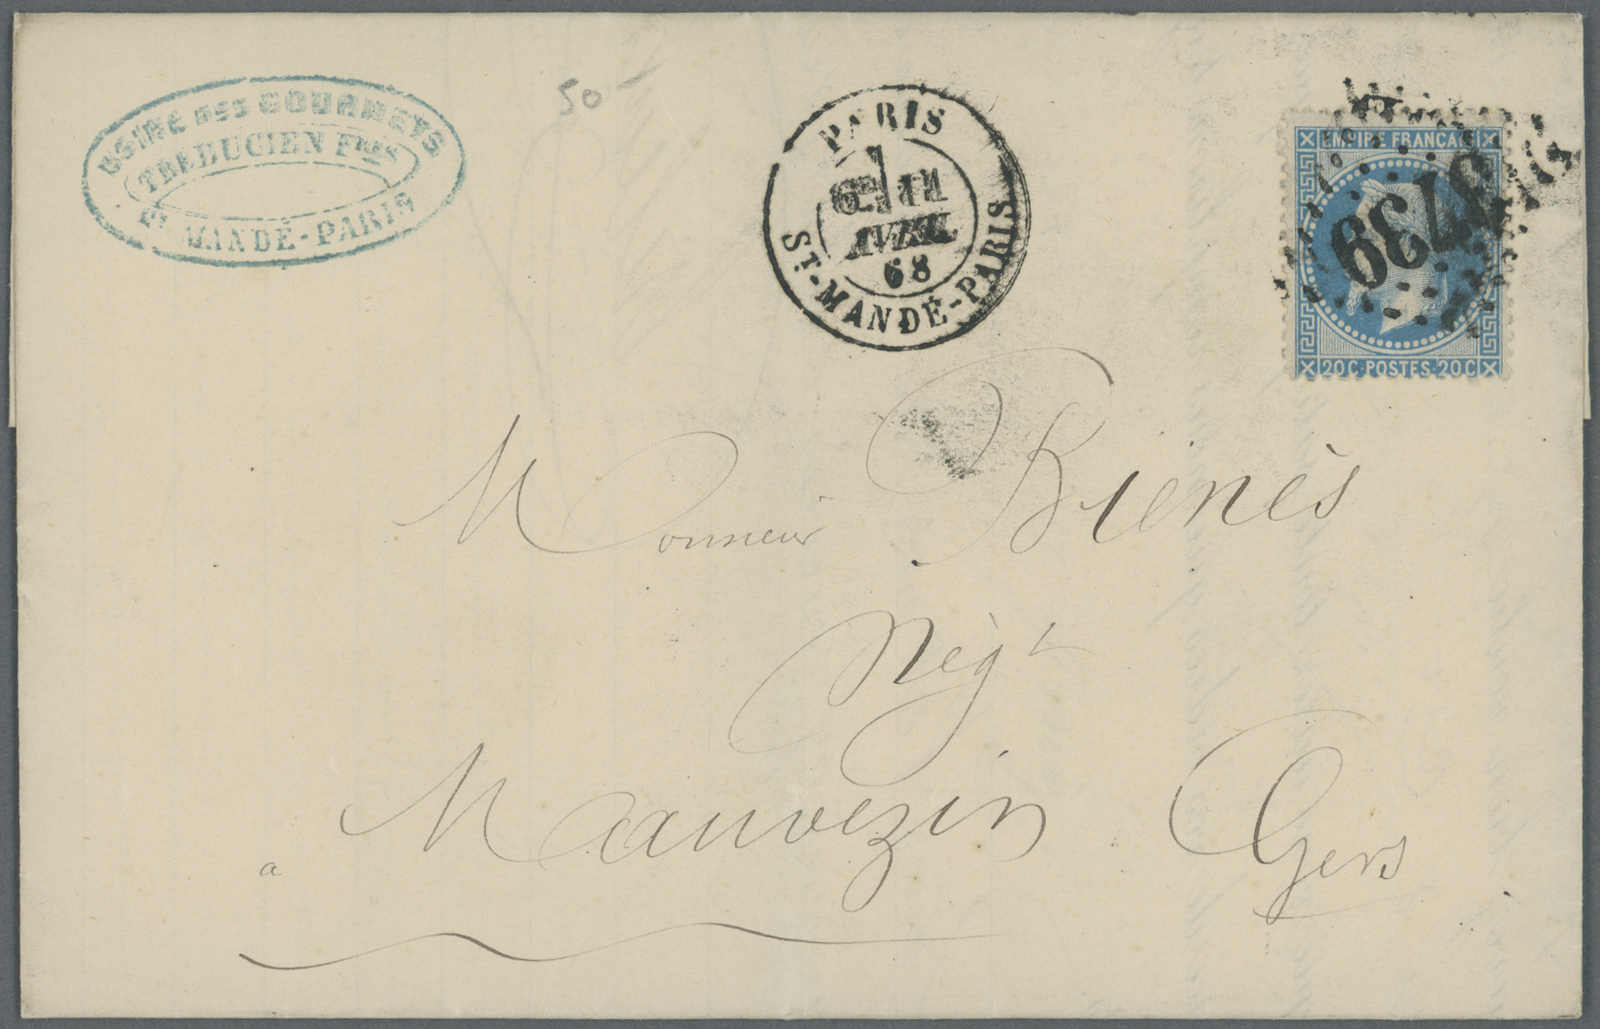 USINE DES GOURMETS
TREBUCIEN Fres
St MANDÉ-PARIS
50-
PARIS
6E 11
AVRIL
68
ST-MANDÉ-PARIS
EMPIRE FRANÇAIS
3739
20C POSTES 20C
Monsieur Bienès
Nègt
a Mauvezin Gers